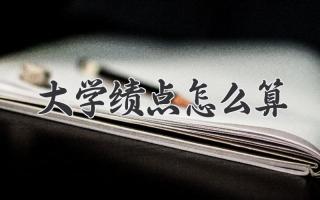 大学绩点怎么算